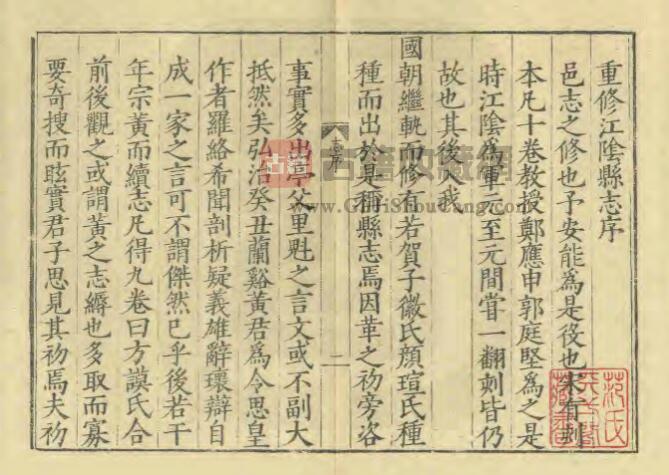 重修江隂縣志序
邑志之修也予安能為是役也宋有刻
本凡十卷教授鄭應申郭庭堅為之是
時江隂為軍元至元間嘗一翻刻皆仍
故也其後入我
國朝繼軌而修有若賀子徽氏顔瑄氏種
種而出於是稱縣志焉因革之初旁咨
二
事實多出亭父里魁之言文或不副大
抵然矣弘治癸丑蘭谿黄君為令思皇
作者羅絡希聞剖析疑義雄辭瓌辯自
成一家之言可不謂傑然已乎後若干
年宗黄而續志凡得九卷曰方謨氏合
前後觀之或謂黄之志縟也多取而寡
要奇搜而眩實君子思見其初焉夫初
古籍收藏网
www.GuJiShouCang.com